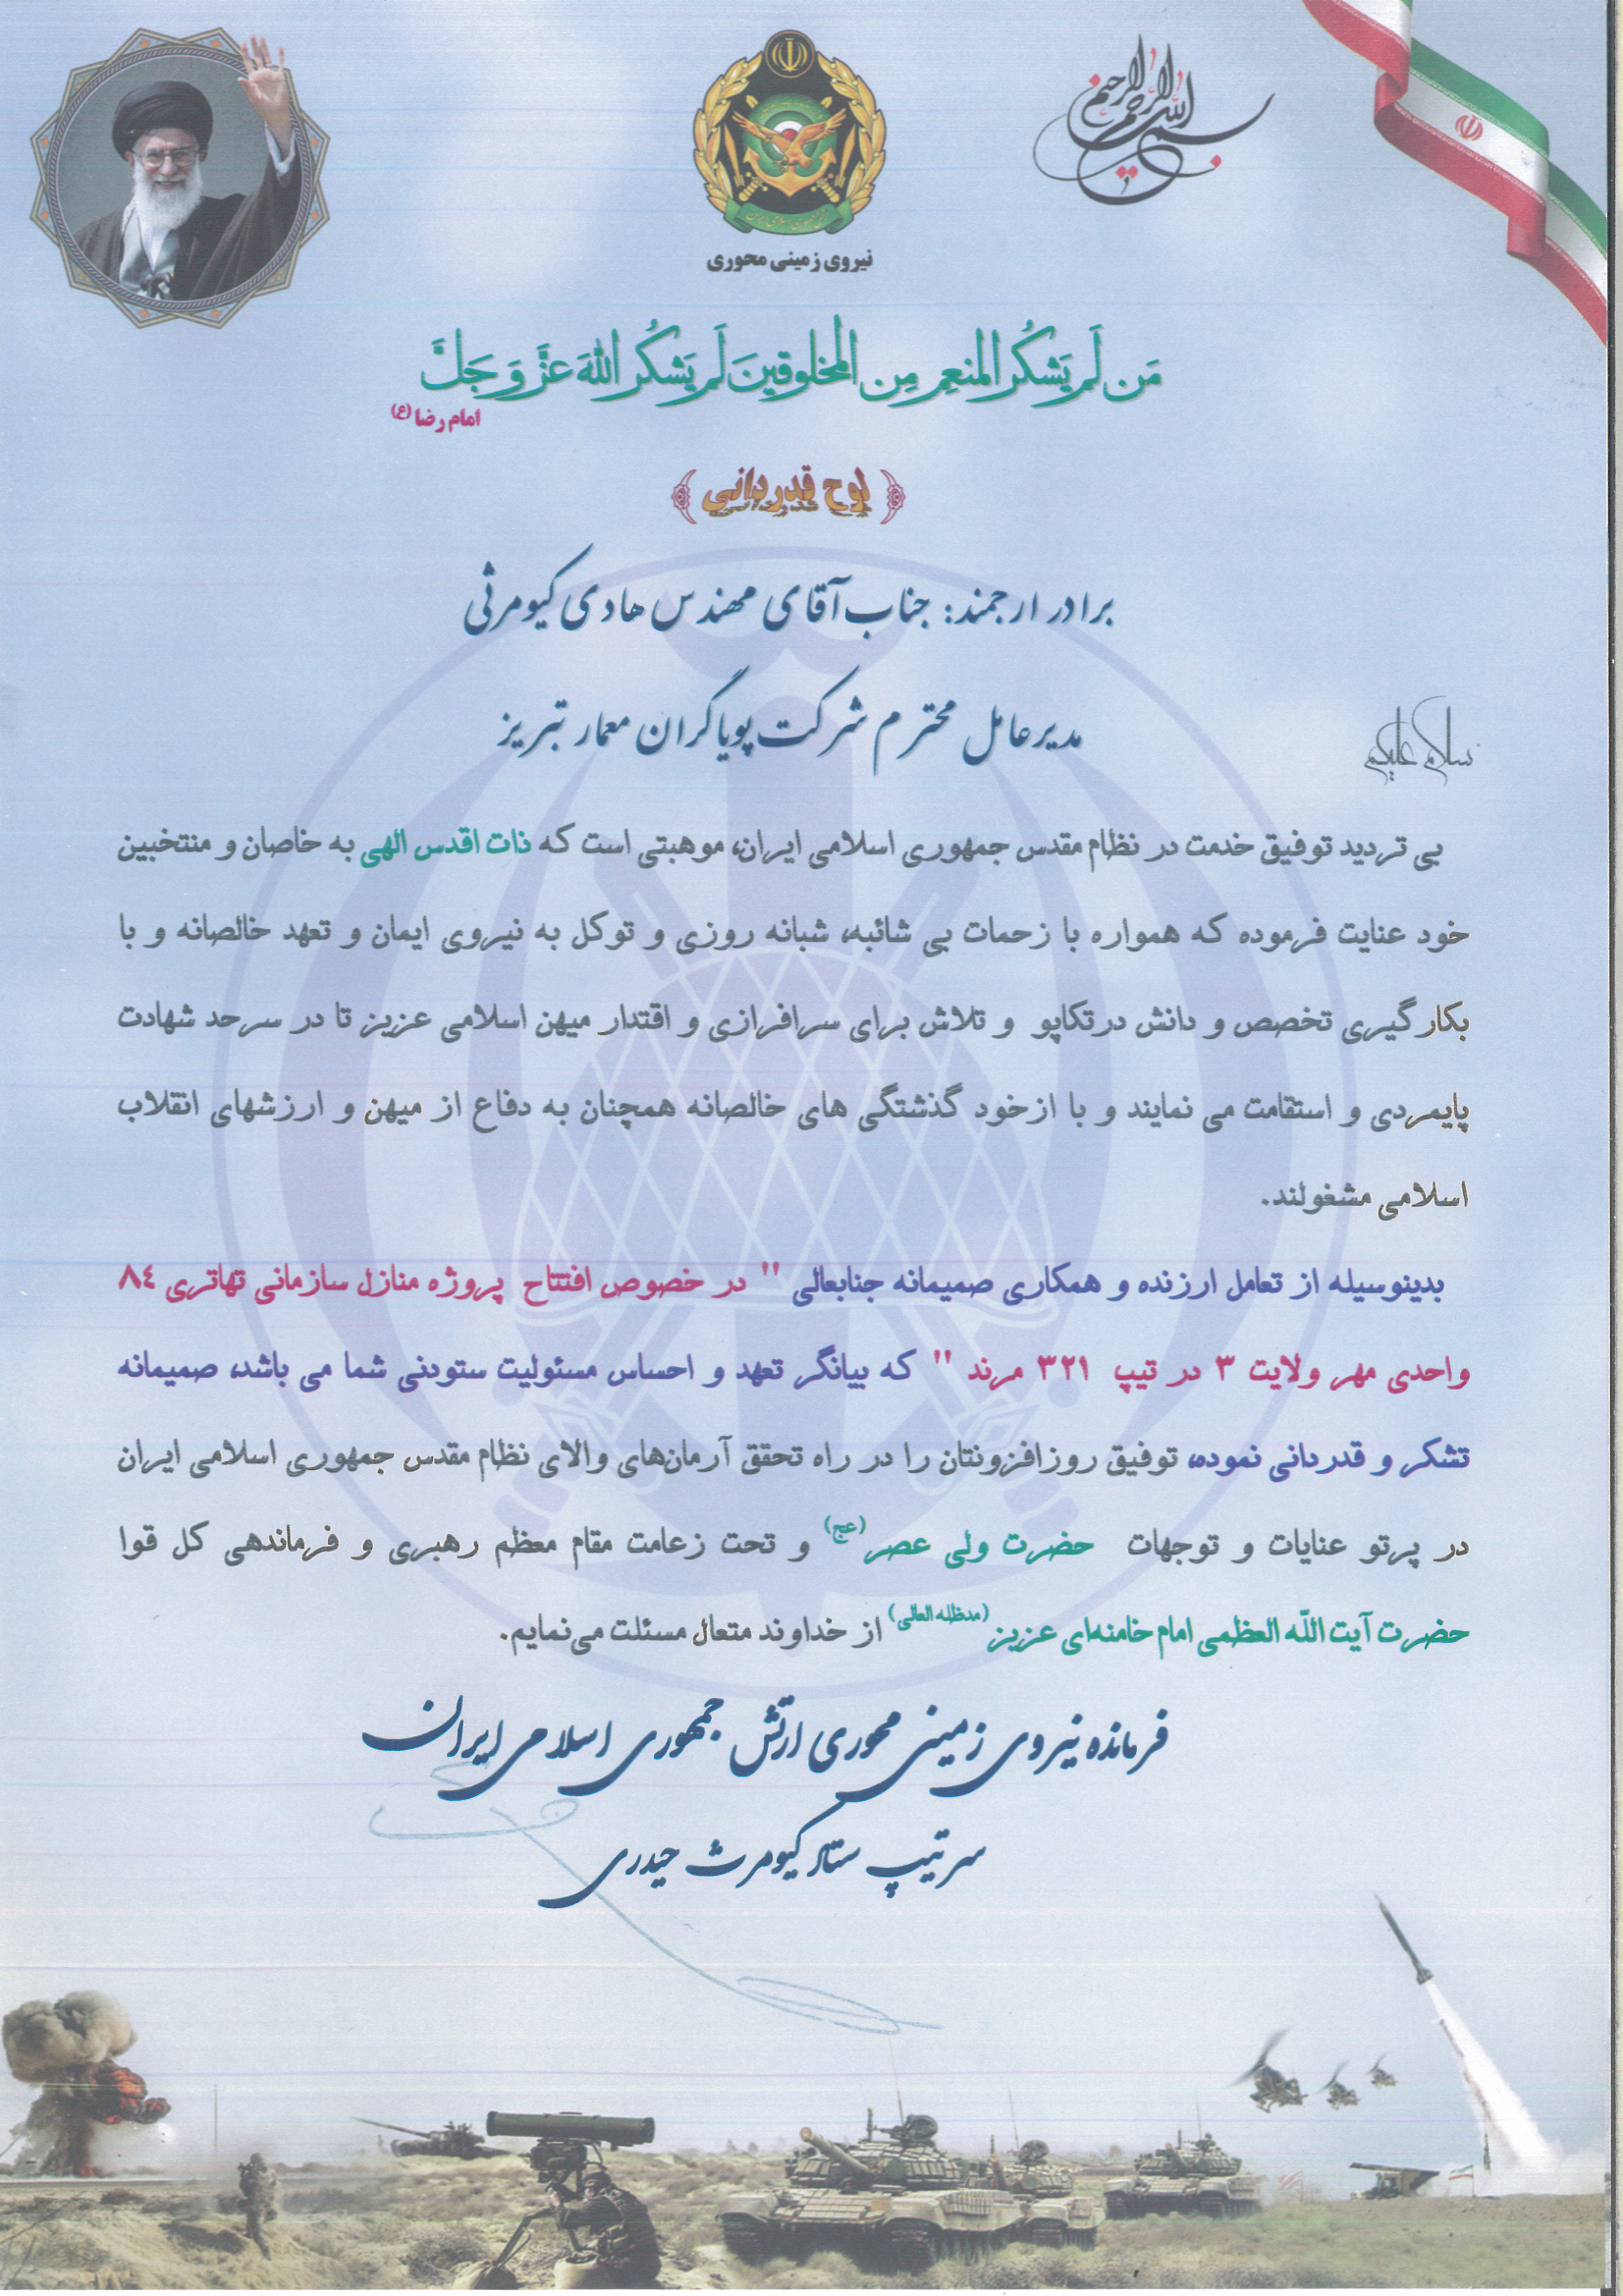 بسم الله الرحمن الرحیم
نیروی زمینی محوری
مَن لَم یَشکُر المنعِم مِن المخلوقینَ لَم یَشکُر اللهَ عَزَّ وَ جَلَّ
امام رضا (ع)
لوح قدردانی
برادر ارجمند: جناب آقای مهندس هادی کیومرثی
مدیرعامل محترم شرکت پویاگران معمار تبریز
سلام علیکم
بی تردید توفیق خدمت در نظام مقدس جمهوری اسلامی ایران، موهبتی است که ذات اقدس الهی به خاصان و منتخبین
خود عنایت فرموده که همواره با زحمات بی شائبه، شبانه روزی و توکل به نیروی ایمان و تعهد خالصانه و با
بکارگیری تخصص و دانش درتکاپو و تلاش برای سرافرازی و اقتدار میهن اسلامی عزیز تا در سرحد شهادت
پایمردی و استقامت می نمایند و با ازخود گذشتگی های خالصانه همچنان به دفاع از میهن و ارزشهای انقلاب
اسلامی مشغولند.
بدینوسیله از تعامل ارزنده و همکاری صمیمانه جنابعالی " در خصوص افتتاح پروژه منازل سازمانی تهاتری ۸۴
واحدی مهر ولایت ۳ در تیپ ۳۲۱ مرند " که بیانگر تعهد و احساس مسئولیت ستودنی شما می باشد، صمیمانه
تشکر و قدردانی نموده، توفیق روزافزونتان را در راه تحقق آرمان‌های والای نظام مقدس جمهوری اسلامی ایران
در پرتو عنایات و توجهات حضرت ولی عصر (عج) و تحت زعامت مقام معظم رهبری و فرماندهی کل قوا
حضرت آیت اللّه العظمی امام خامنه‌ای عزیز (مدظله العالی) از خداوند متعال مسئلت می‌نمایم.
فرمانده نیروی زمینی محوری ارتش جمهوری اسلامی ایران
سرتیپ ستاد کیومرث حیدری